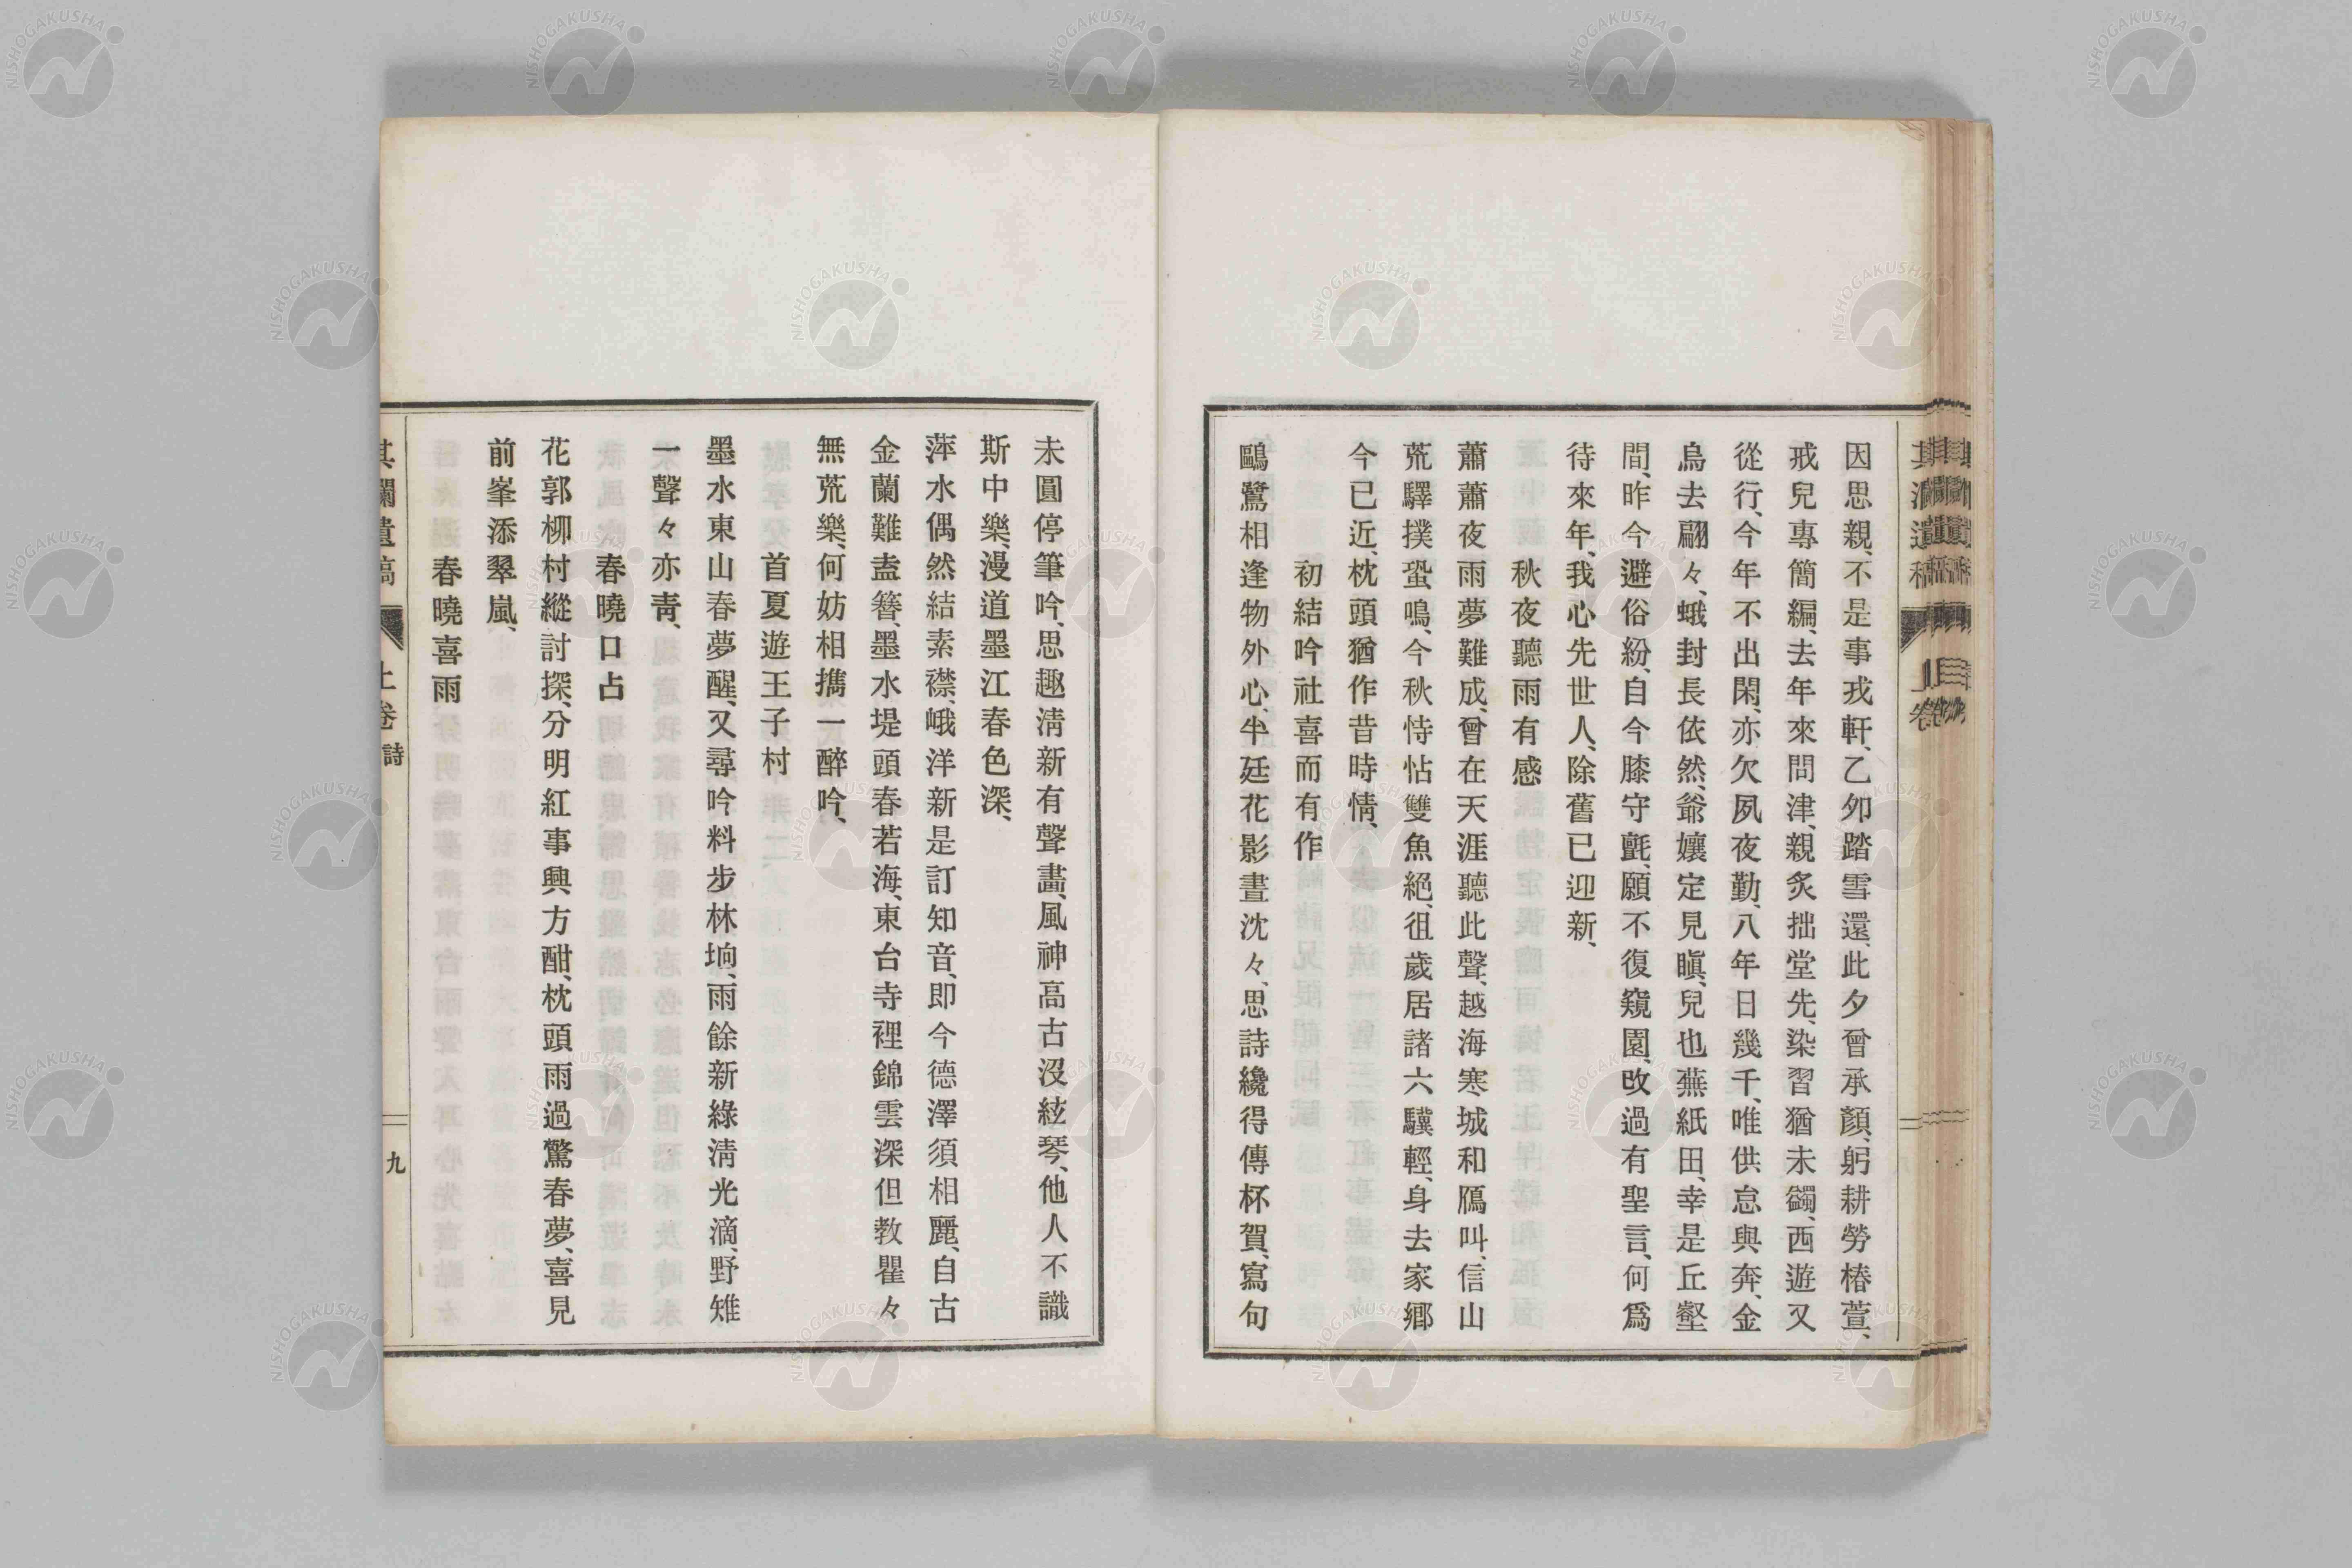 因思親、不是事戎軒、乙夘踏雪還、此夕曾承顏、躬耕勞椿萱、
戒兒專簡編、去年來問津、親炙拙堂先、染習猶未蠲、西遊又
從行、今年不出閑、亦欠夙夜勤、八年日幾千、唯供怠與奔、金
烏去翩々、蛾封長依然、爺孃定見瞋、兒也蕪紙田、幸是丘壑
間、昨今避俗紛、自今膝守氈、願不復窺園、改過有聖言、何爲
待來年、我心先世人、除舊已迎新、
秋夜聽雨有感
蕭蕭夜雨夢難成、曾在天涯聽此聲、越海寒城和鴈叫、信山
荒驛撲蛩鳴、今秋恃怙雙魚絕、徂歲居諸六驥輕、身去家鄉
今已近、枕頭猶作昔時情、
初結吟社喜而有作
鷗鷺相逢物外心、半廷花影晝沈々、思詩纔得傳杯賀、寫句
未圓停筆吟、思趣淸新有聲畫、風神高古沒絃琴、他人不識
斯中樂、漫道墨江春色深、
萍水偶然結素襟、峨洋新是訂知音、即今德澤須相麗、自古
金蘭難盍簪、墨水堤頭春若海、東台寺裡錦雲深、但教瞿々
無荒樂、何妨相攜一醉吟、
首夏遊王子村
墨水東山春夢醒、又尋吟料步林坰、雨餘新綠淸光滴、野雉
一聲々亦靑、
春曉口占
花郭柳村縱討探、分明紅事興方酣、枕頭雨過驚春夢、喜見
前峯添翠嵐、
春曉喜雨
其瀾遺稿 上卷 詩 九
NISHOGAKUSHA